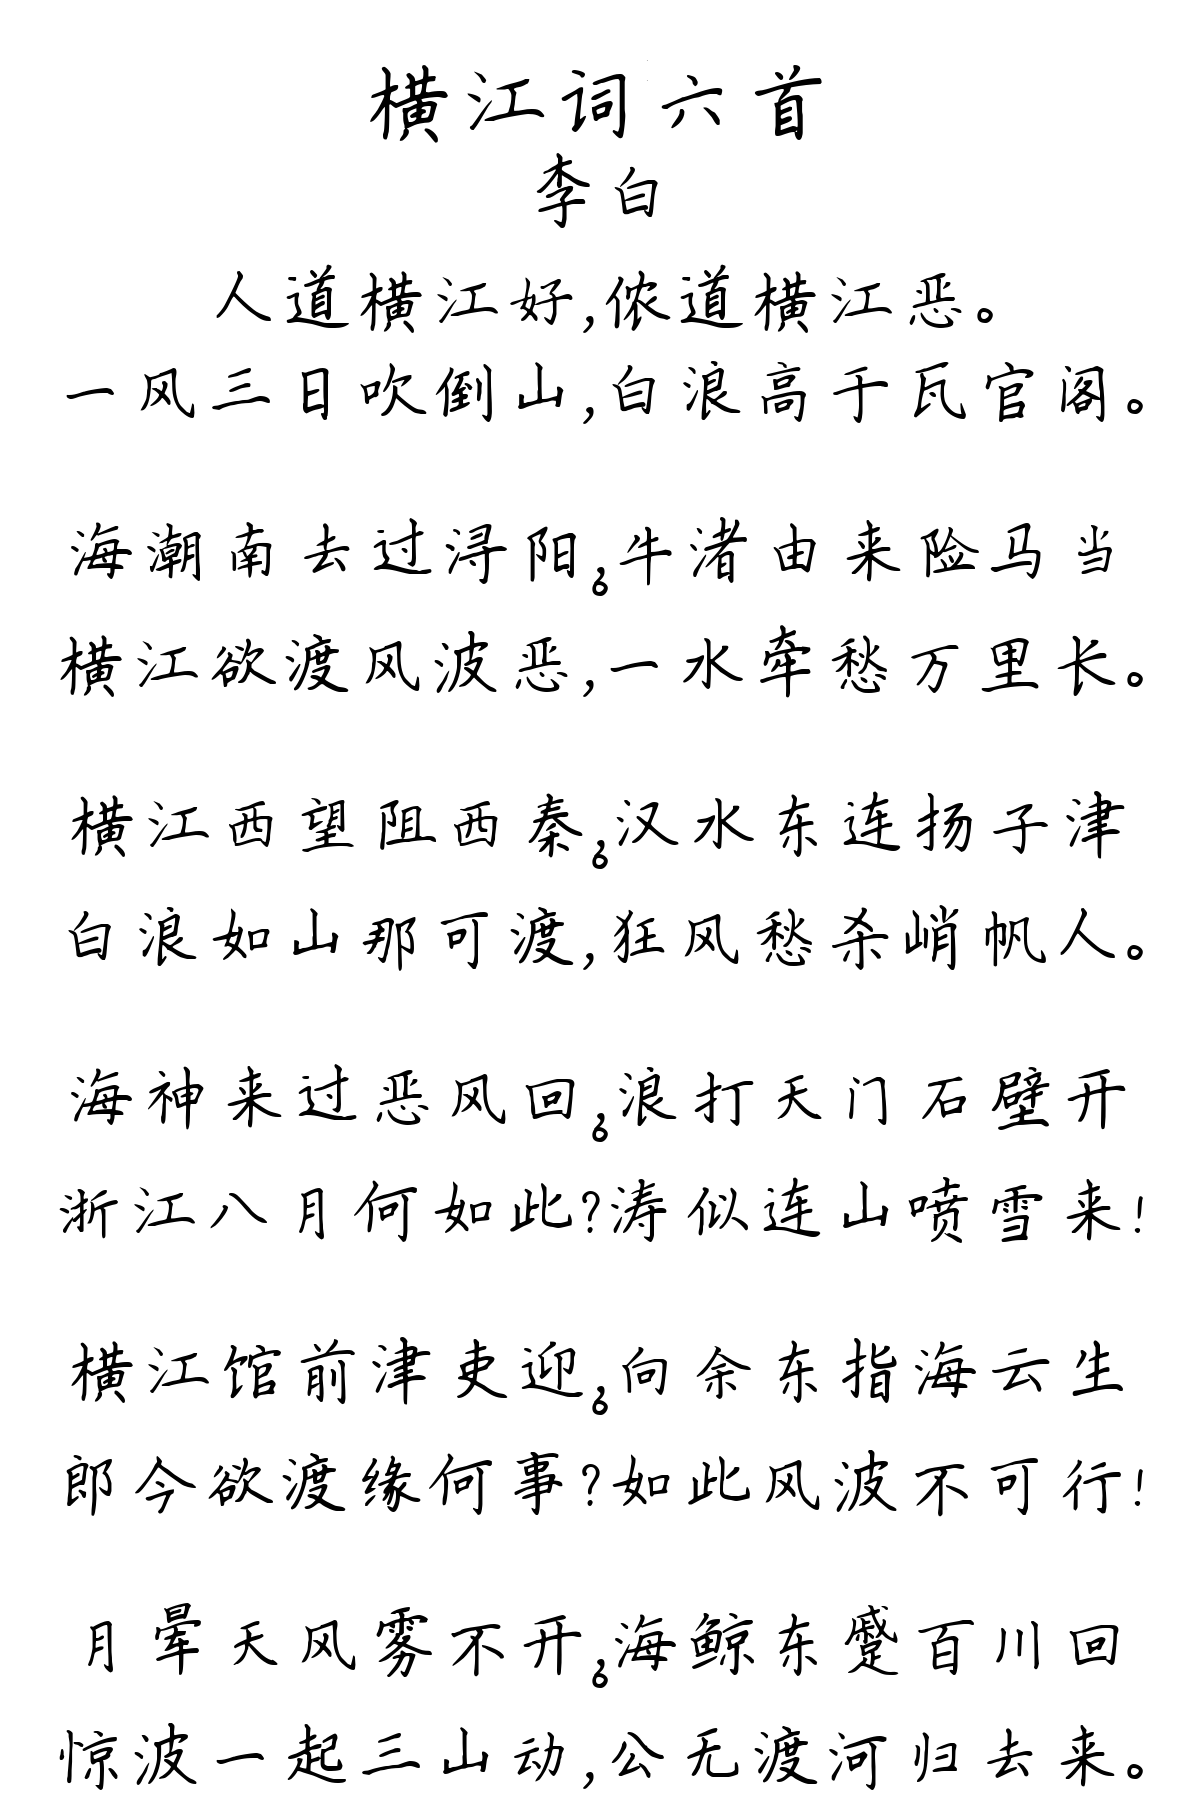 横江词六首
李白
人道横江好,侬道横江恶。
一风三日吹倒山,白浪高于瓦官阁。
海潮南去过浔阳,牛渚由来险马当。
横江欲渡风波恶,一水牵愁万里长。
横江西望阻西秦,汉水东连扬子津。
白浪如山那可渡,狂风愁杀峭帆人。
海神来过恶风回,浪打天门石壁开。
浙江八月何如此?涛似连山喷雪来!
横江馆前津吏迎,向余东指海云生。
郎今欲渡缘何事?如此风波不可行!
月晕天风雾不开,海鲸东蹙百川回。
惊波一起三山动,公无渡河归去来。